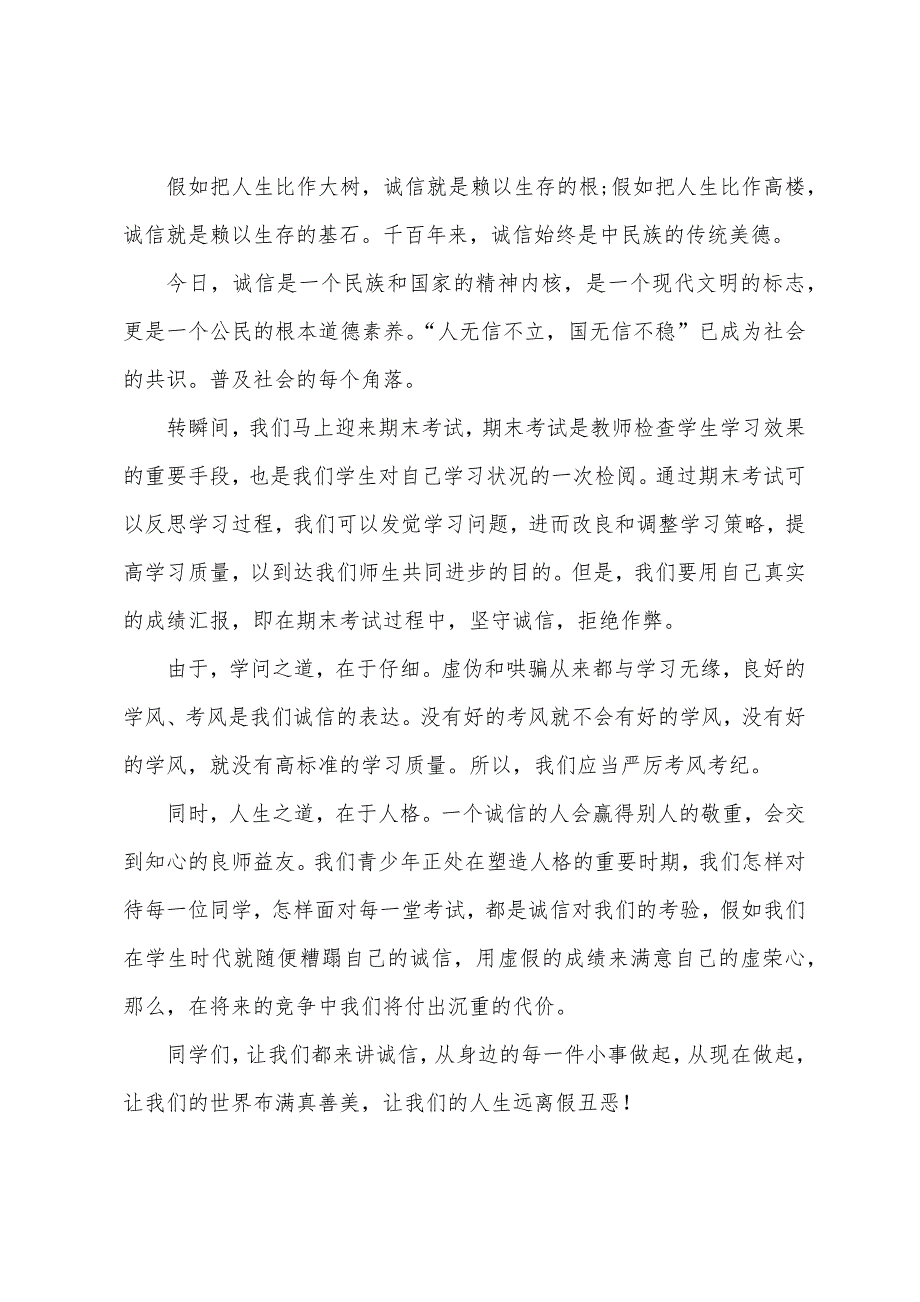 假如把人生比作大树，诚信就是赖以生存的根;假如把人生比作高楼，
诚信就是赖以生存的基石。千百年来，诚信始终是中民族的传统美德。
今日，诚信是一个民族和国家的精神内核，是一个现代文明的标志，
更是一个公民的根本道德素养。“人无信不立，国无信不稳”已成为社会
的共识。普及社会的每个角落。
转瞬间，我们马上迎来期末考试，期末考试是教师检查学生学习效果
的重要手段，也是我们学生对自己学习状况的一次检阅。通过期末考试可
以反思学习过程，我们可以发觉学习问题，进而改良和调整学习策略，提
高学习质量，以到达我们师生共同进步的目的。但是，我们要用自己真实
的成绩汇报，即在期末考试过程中，坚守诚信，拒绝作弊。
由于，学问之道，在于仔细。虚伪和哄骗从来都与学习无缘，良好的
学风、考风是我们诚信的表达。没有好的考风就不会有好的学风，没有好
的学风，就没有高标准的学习质量。所以，我们应当严厉考风考纪。
同时，人生之道，在于人格。一个诚信的人会赢得别人的敬重，会交
到知心的良师益友。我们青少年正处在塑造人格的重要时期，我们怎样对
待每一位同学，怎样面对每一堂考试，都是诚信对我们的考验，假如我们
在学生时代就随便糟蹋自己的诚信，用虚假的成绩来满意自己的虚荣心，
那么，在将来的竞争中我们将付出沉重的代价。
同学们，让我们都来讲诚信，从身边的每一件小事做起，从现在做起，
让我们的世界布满真善美，让我们的人生远离假丑恶！